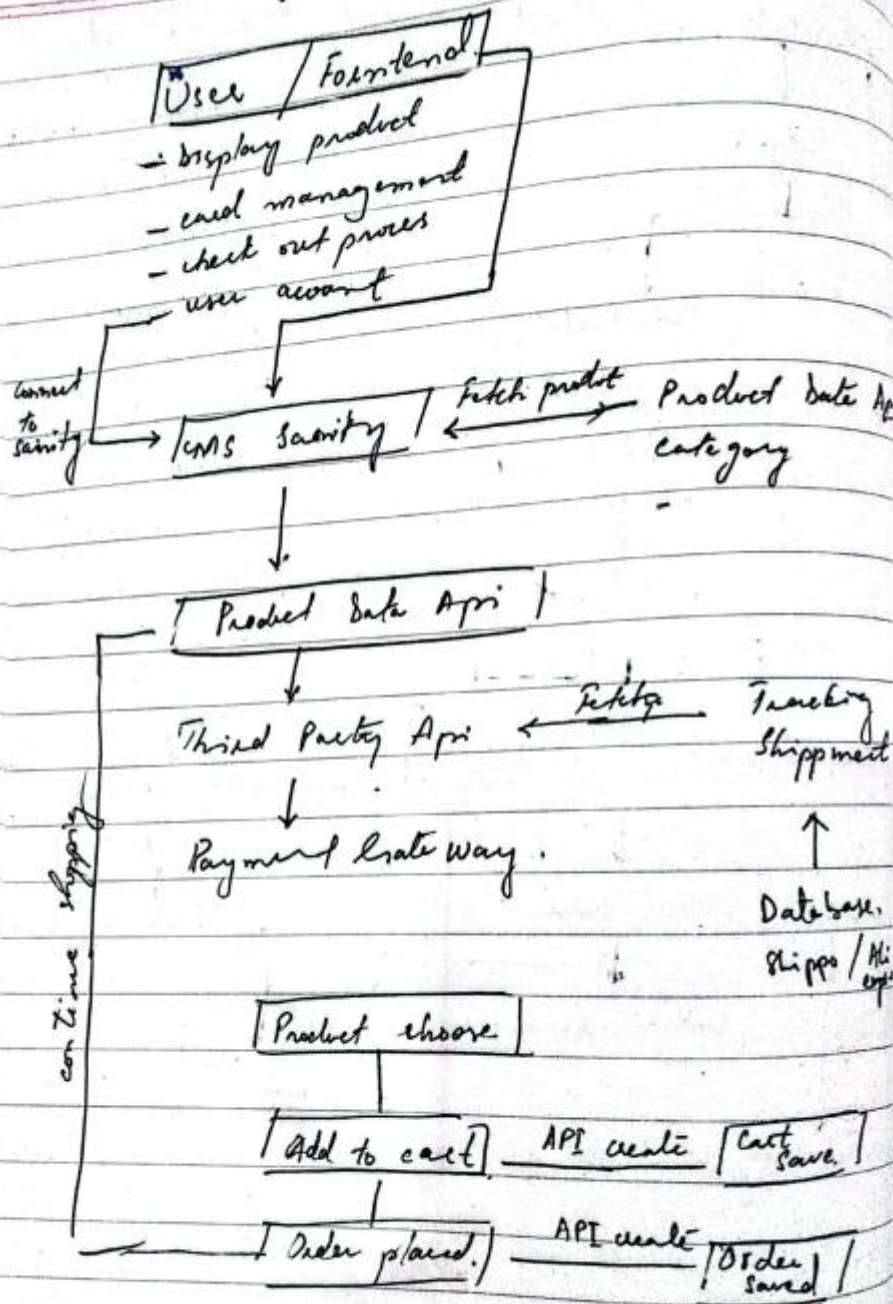 User / Frontend
- Display product
- card management
- check out proces
- user account
connect
to
sanity
CMS Sanity
Fetch product
Product Data Ap
category
Product Data Api
Third Party Api
Fetch
Tracking
Shippment
Payment Gate way.
Database.
Shippo / Ali
continue shopping
Product choose
Add to cart
API create
Cart
save
Order placed.
API create
Order
saved